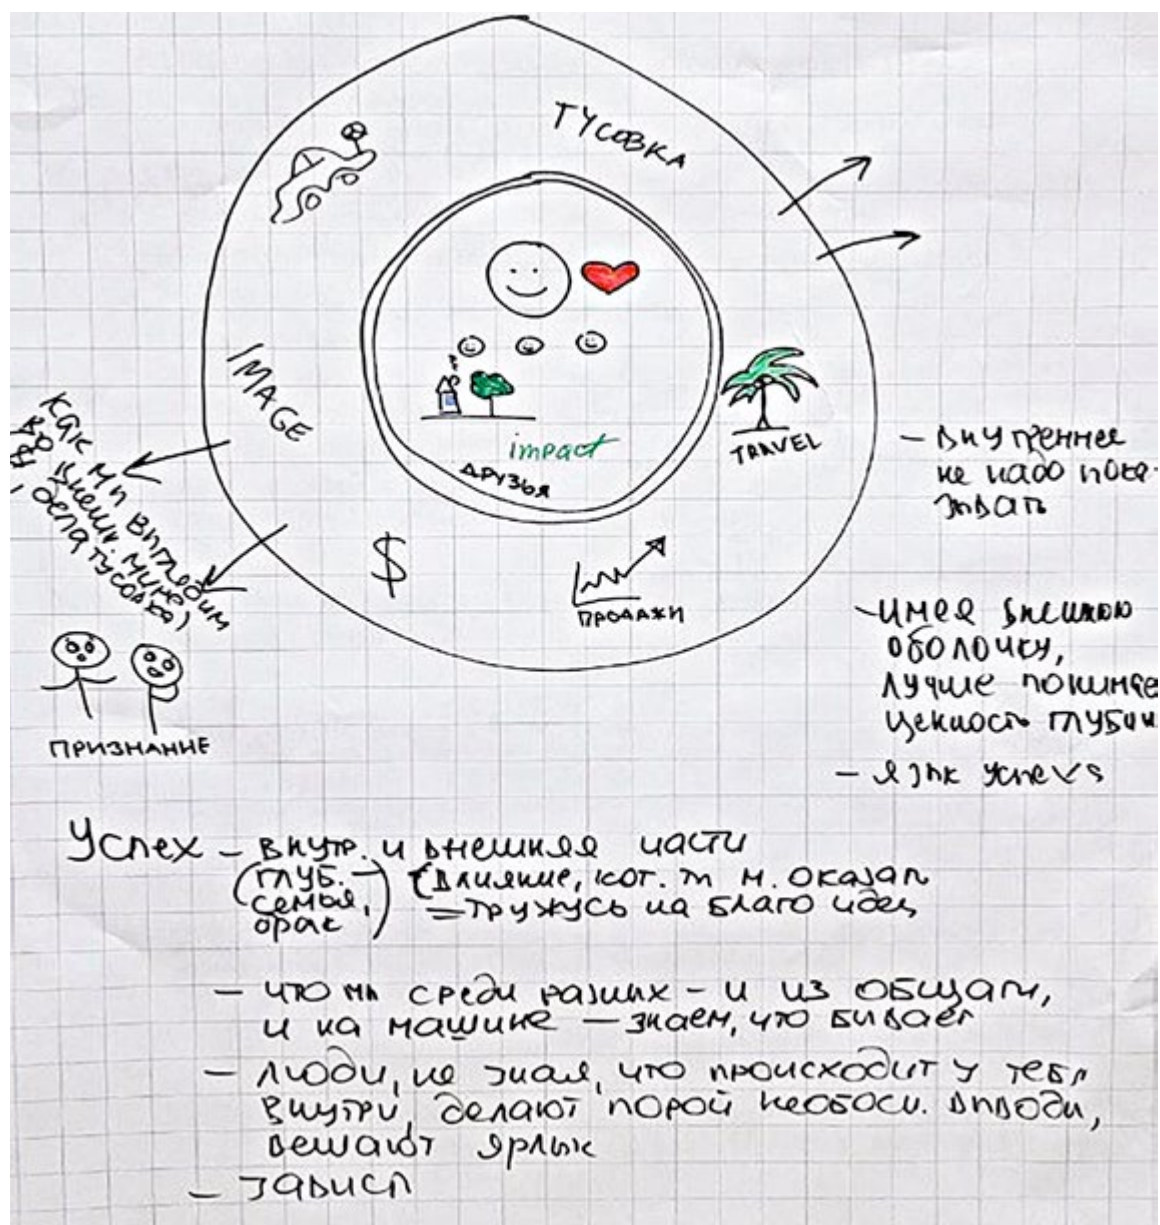 ТУСОВКА
IMAGE
impact
ДРУЗЬЯ
TRAVEL
$
ПРОДАЖИ
как мы выглядим
во внешн. мире,
дела, тусовка)
ПРИЗНАНИЕ
- внутреннее
не надо пока-
зывать
- имея внешнюю
оболочку,
лучше понимае
ценность глубин
- язык успеха
Успех - внутр. и внешняя части
(глуб. - (влияние, кот. ты м. оказать
семья, = тружусь на благо
брак)
- что мы среди разных - и из общаги,
и на машине - знаем, что бывает
- люди, не зная, что происходит у тебя
внутри, делают порой необосн. выводы,
вешают ярлык
- зависть